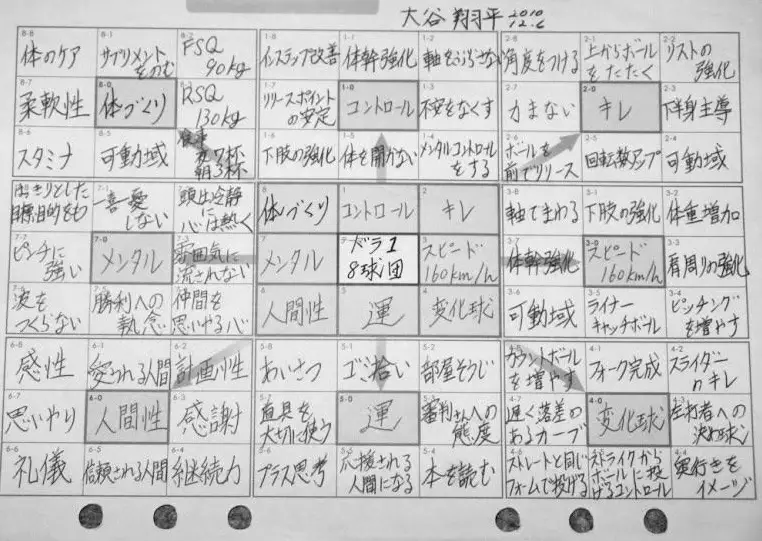 大谷 翔平 2010
12.6
8-8
体のケア
8-1
サプリメント
をのむ
8-2
FSQ
90kg
8-7
柔軟性
8-0
体づくり
8-3
RSQ
130kg
8-6
スタミナ
8-5
可動域
食事
夜7杯
朝3杯
1-8
インステップ改善
1-1
体幹強化
1-2
軸をぶらさない
1-7
リリースポイント
の安定
1-0
コントロール
1-3
不安をなくす
1-6
下肢の強化
1-5
体を開かない
1-4
メンタルコントロール
をする
2-8
角度をつける
2-1
上からボール
をたたく
2-2
リストの
強化
2-7
力まない
2-0
キレ
2-3
下半身主導
2-6
ボールを
前でリリース
2-5
回転数アップ
2-4
可動域
はっきりとした
目標目的をもつ
7-1
一喜一憂
しない
頭は冷静
に
心は熱く
7-7
ピンチに
強い
7-0
メンタル
雰囲気に
流されない
7-6
波を
つくらない
7-5
勝利への
執念
仲間を
思いやる心
8
体づくり
1
コントロール
2
キレ
7
メンタル
ドラ1
8球団
3
スピード
160km/h
6
人間性
5
運
4
変化球
3-8
軸でまわる
3-1
下肢の強化
3-2
体重増加
3-7
体幹強化
3-0
スピード
160km/h
3-3
肩周りの強化
3-6
可動域
3-5
ライナー
キャッチボール
3-4
ピッチング
を増やす
6-8
感性
6-1
愛される人間
6-2
計画性
6-7
思いやり
6-0
人間性
6-3
感謝
6-6
礼儀
6-5
信頼される人間
6-4
継続力
5-8
あいさつ
5-1
ゴミ拾い
5-2
部屋そうじ
5-7
道具を
大切に使う
5-0
運
5-3
審判さんへの
態度
5-6
プラス思考
5-5
応援される
人間になる
5-4
本を読む
カウントボール
を増やす
4-1
フォーク完成
4-2
スライダー
のキレ
4-7
遅く落差の
あるカーブ
4-0
変化球
4-3
左打者への
決め球
4-6
ストレートと同じ
フォームで投げる
ストライクから
ボールに投
げるコントロール
4-4
奥行きを
イメージ